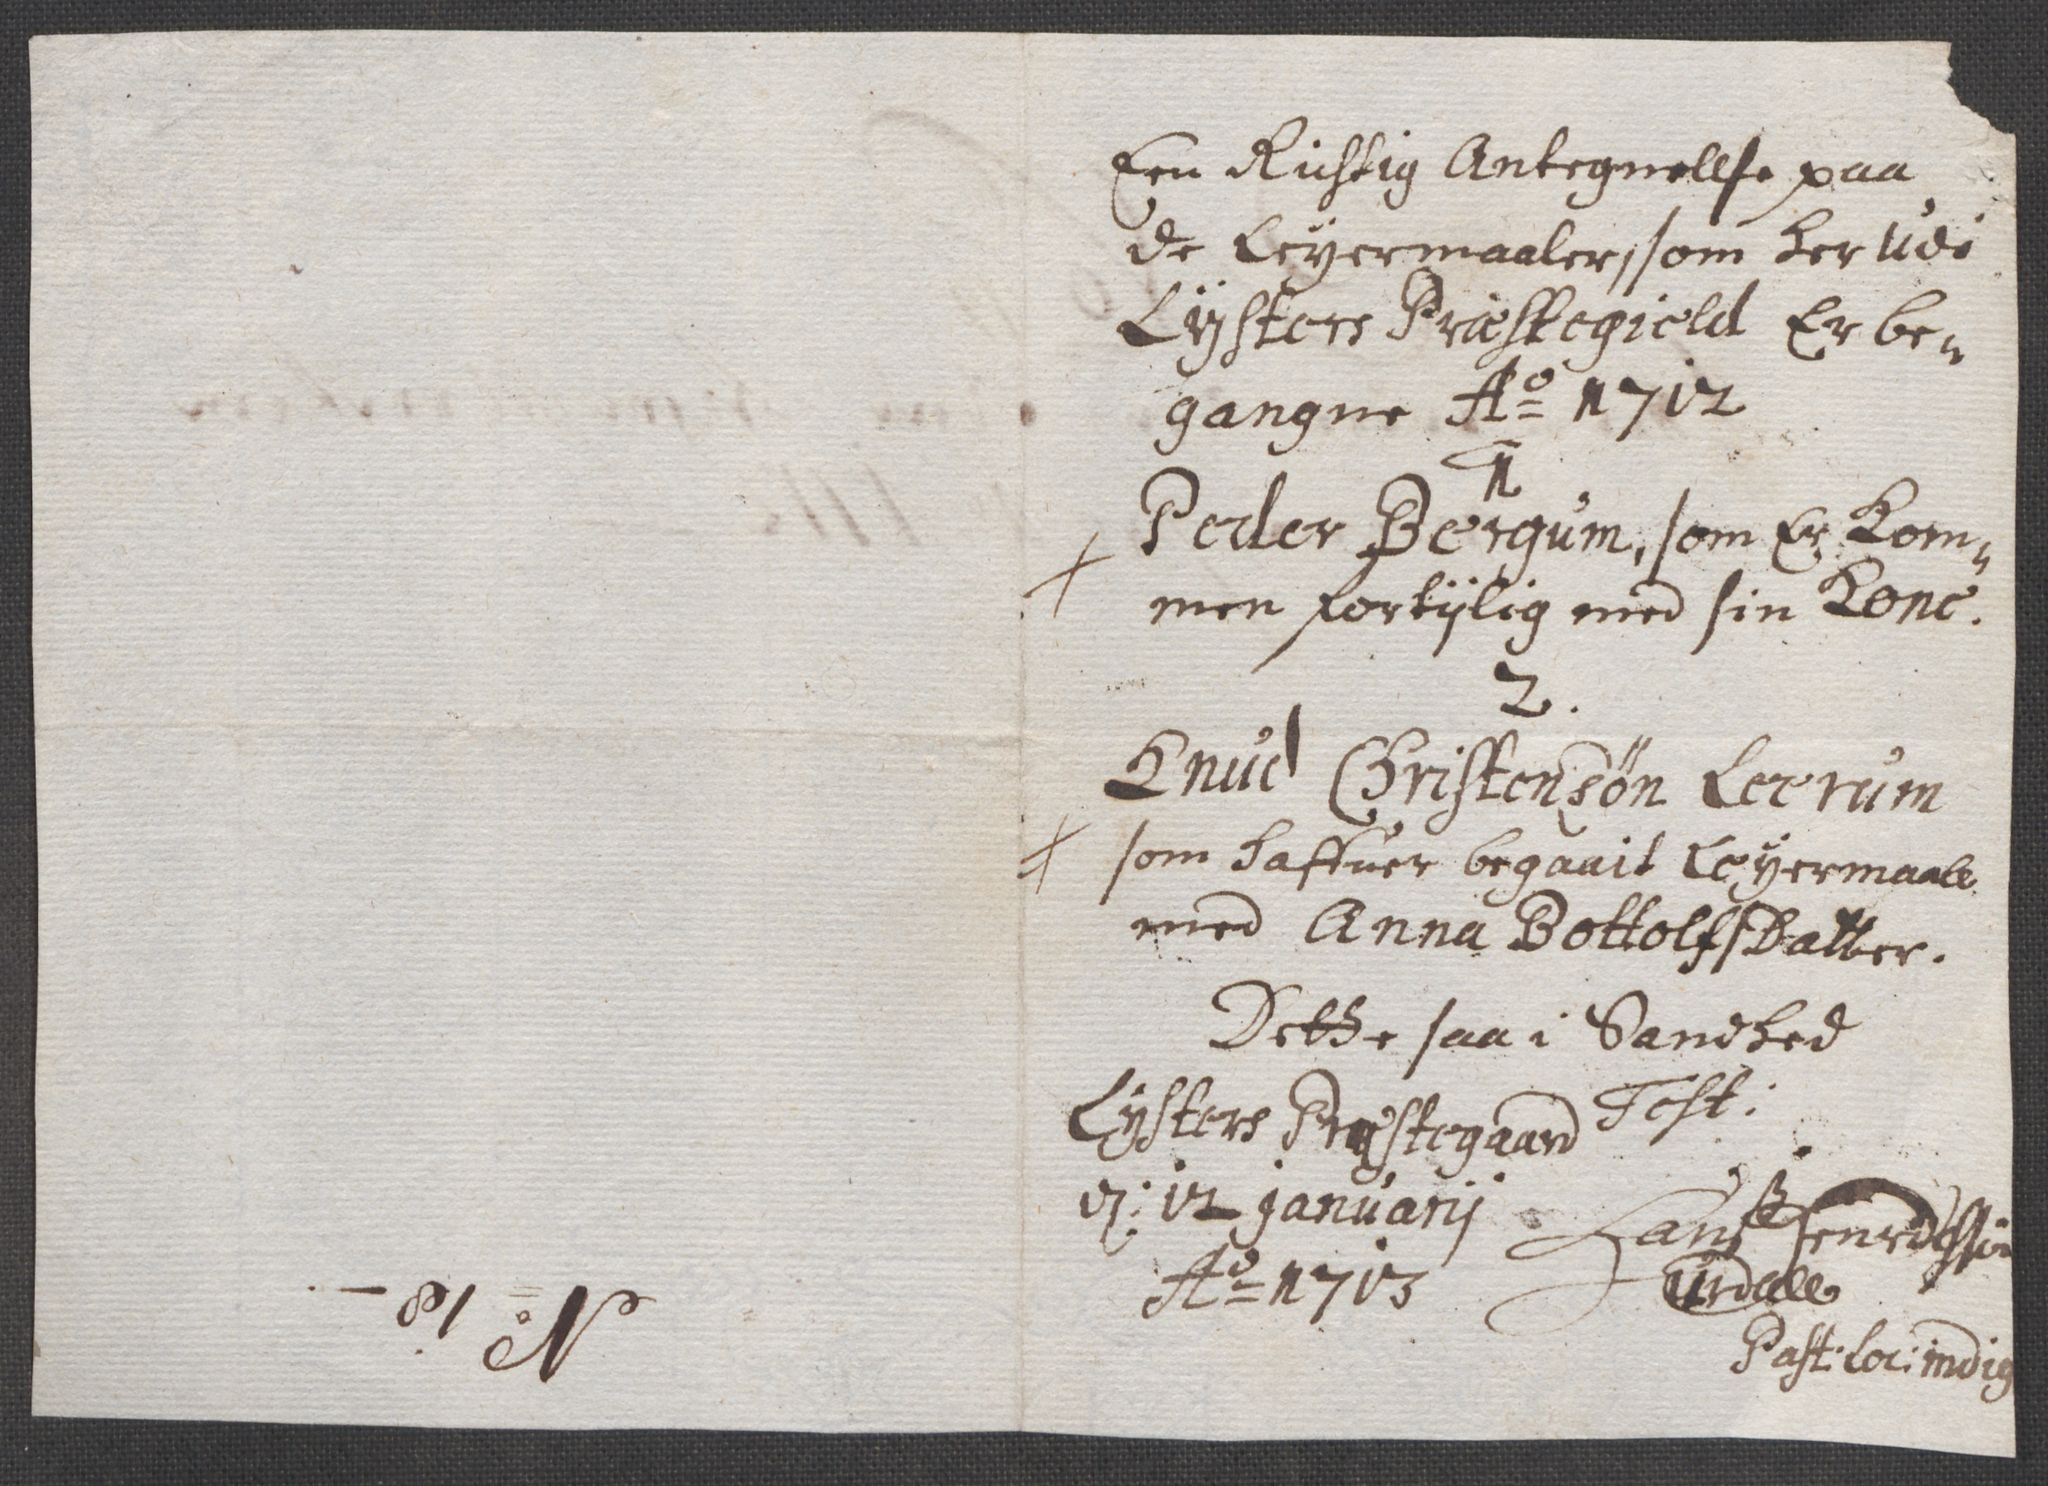 Een Richtig Antegnellse paa
de Leyermaaler, som her udi
Lÿsters Præstegield Er be„
gangne Aº 1712
1
Peder Bergum, som Er Kom„
men fortijlig med sin Kone.
2.
Knud Christensön Leerum
som haffuer begaait Leÿermaale
med Anna BottolfsDatter.
Dette saa i Sandhed
Lÿsters Præstegaard Test:
d: 12 januarij
Aº 1713
Urdall
Past: loc: indig
Nº: 18